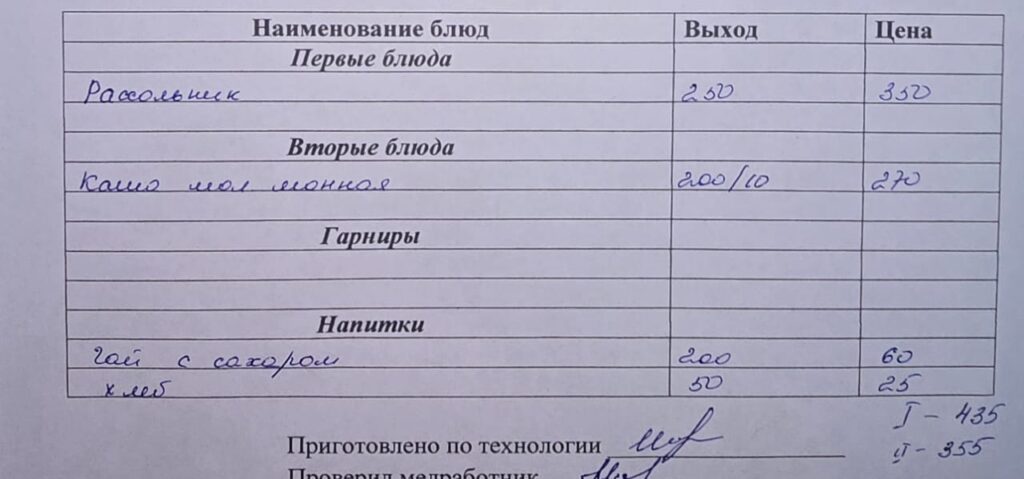 Наименование блюд Выход Цена
Первые блюда
Рассольник 250 350
Вторые блюда
Каша мол манная 200/10 270
Гарниры
Напитки
Чай с сахаром 200 60
хлеб 50 25
I - 435
Приготовлено по технологии
II - 355
Проверил медработник